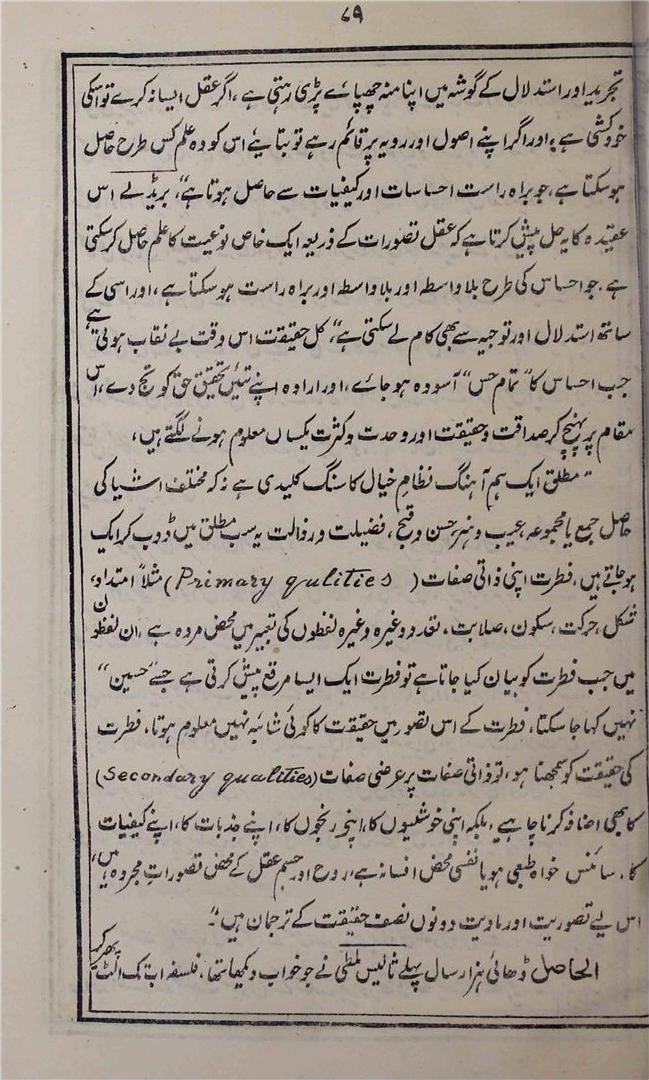 ۸۹
تجرید اور استدلال کے گوشہ میں اپنا منہ چھپائے پڑی رہتی ہے، اگر عقل ایسا نہ کرے تو اسکی
خودکشی ہے، اور اگر اپنے اصول اور رویہ پر قائم رہے تو بتایئے اس کو وہ علم کس طرح حاصل
ہوسکتا ہے، جو براہ راست احساسات اور کیفیات سے حاصل ہوتا ہے"، بریڈلے اس
عقیدہ کا یہ حل پیش کرتا ہے کہ عقل تصورات کے ذریعہ ایک خاص نوعیت کا علم حاصل کرسکتی
ہے جو احساس کی طرح بلاواسطہ اور بلاواسطہ اور براہ راست ہوسکتا ہے، اور اسی کے
ساتھ استدلال اور توجیہ سے بھی کام لے سکتی ہے"، کل حقیقت اس وقت بے نقاب ہوتی ہے
جب احساس کا "تمام حس" آسودہ ہو جائے، اور ارادہ اپنے تئیں تحقیق حق کو تج دے، اس
مقام پر پہنچ کر صداقت و حقیقت اور وحدت و کثرت یکساں معلوم ہونے لگتے ہیں،
"مطلق ایک ہم آہنگ نظامِ خیال کا سنگ کلیدی ہے نہ کہ مختلف اشیا کی
حاصل جمع یا مجموعہ، عیب و ہنر، حسن و قبح، فضیلت و رذالت یہ سب مطلق میں ڈوب کر ایک
ہوجاتے ہیں، فطرت اپنی ذاتی صفات (Primary qulities) مثلاً امتداد،
شکل، حرکت، سکون، صلابت، تعدد وغیرہ وغیرہ لفظوں کی تعبیر میں محض مردہ ہے، ان لفظوں
میں جب فطرت کو بیان کیا جاتا ہے تو فطرت ایک ایسا مرقع پیش کرتی ہے جسے "حسین"
نہیں کہا جاسکتا، فطرت کے اس تصور میں حقیقت کا کوئی شائبہ نہیں معلوم ہوتا، فطرت
کی حقیقت کو سمجھنا ہو، تو ذاتی صفات پر عرضی صفات (Secondary qualities)
کا بھی اضافہ کرنا چاہیے، بلکہ اپنی خوشیوں کا، اپنے رنجوں کا، اپنے جذبات کا، اپنے کیفیات
کا، سائنس خواہ طبعی ہو یا نفسی محض افسانہ ہے، روح اور جسم عقل کے محض تصوراتِ مجردہ ہیں،
اس لیے تصوریت اور مادیت دونوں نصف حقیقت کے ترجمان ہیں"۔
الحاصل ڈھائی ہزار سال پہلے ثالیس ملطی نے جو خواب دیکھا تھا، فلسفہ اب تک الٹ پھیر کر